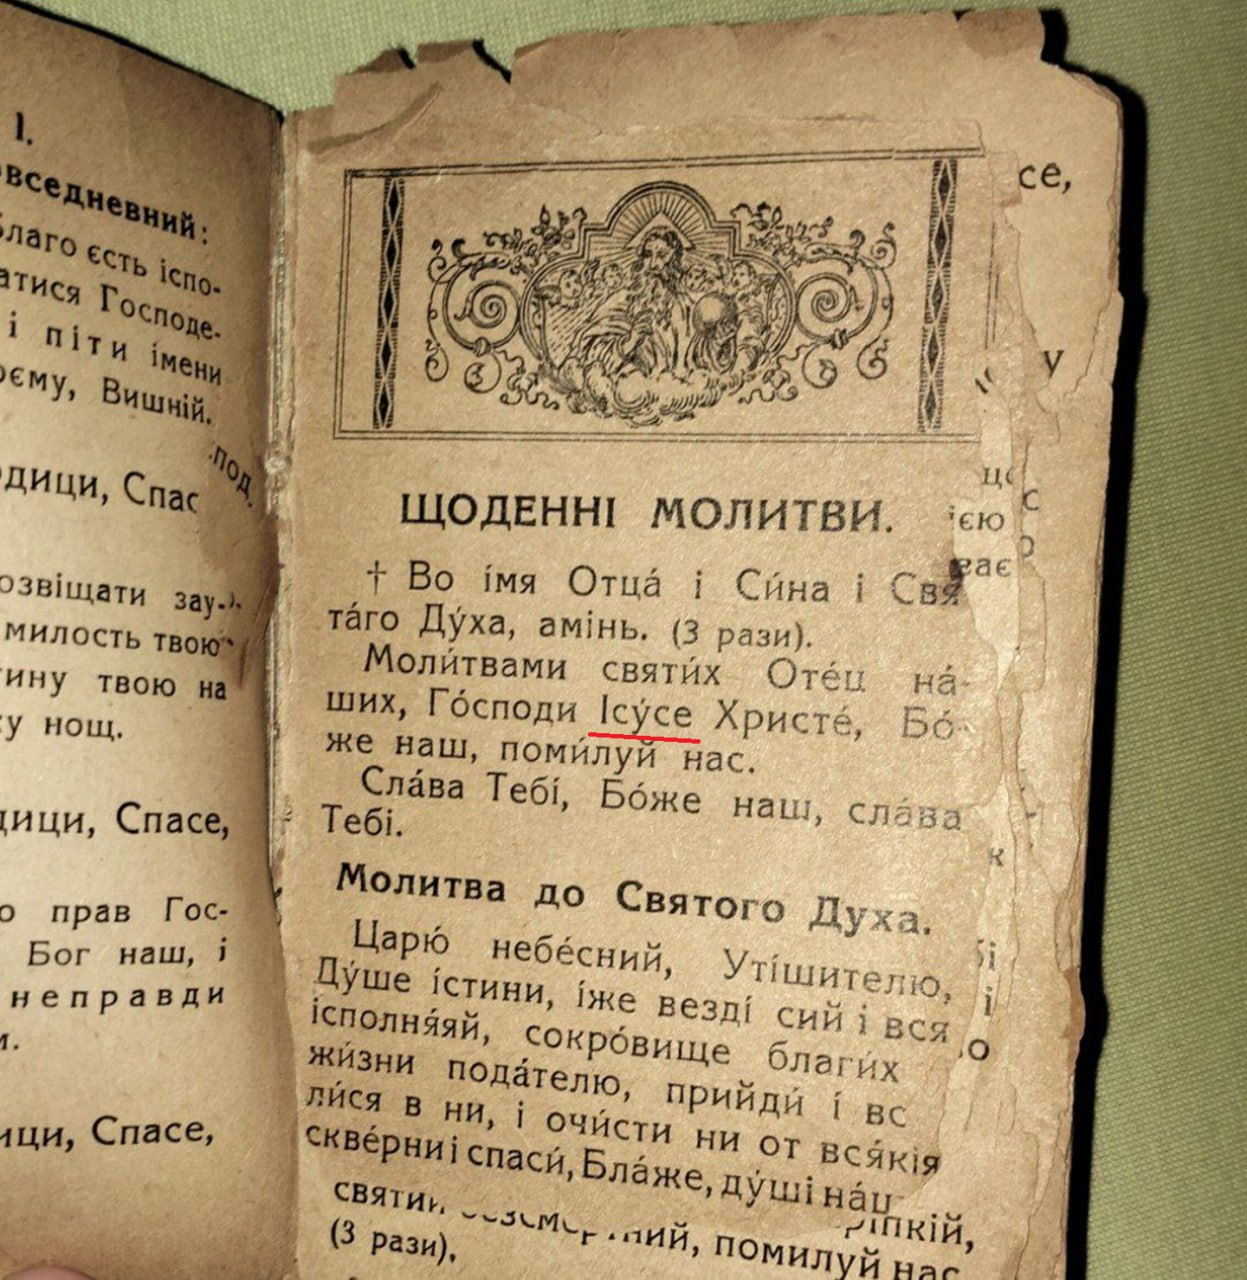 І.
благо єсть іспо-
Господе-
і піти імени
Вишній.
под.
Спас
зау-
милость твою
твою на
нощ.
Спасе,
прав Гос-
Бог наш, і
неправди
Спасе,
ЩОДЕННІ МОЛИТВИ.
† Во і́мя Отца́ і Си́на і Свя
та́го Ду́ха, амі́нь. (3 рази).
Моли́твами святи́х Оте́ц на́-
ших, Го́споди Ісу́се Христе́, Бо́-
же наш, поми́луй нас.
Сла́ва Тебі́, Бо́же наш, сла́ва
Тебі.
Молитва до Святого Духа.
Царю́ небе́сний, Уті́шителю,
Ду́ше і́стини, і́же везді́ сий і вся
ісполня́яй, сокро́вище благи́х
жи́зни пода́телю, прийди́ і вс
ли́ся в ни, і очи́сти ни от вся́кія
скве́рни і спаси́, Бла́же, ду́ші на́ш
святий помилуй нас
(3 рази).